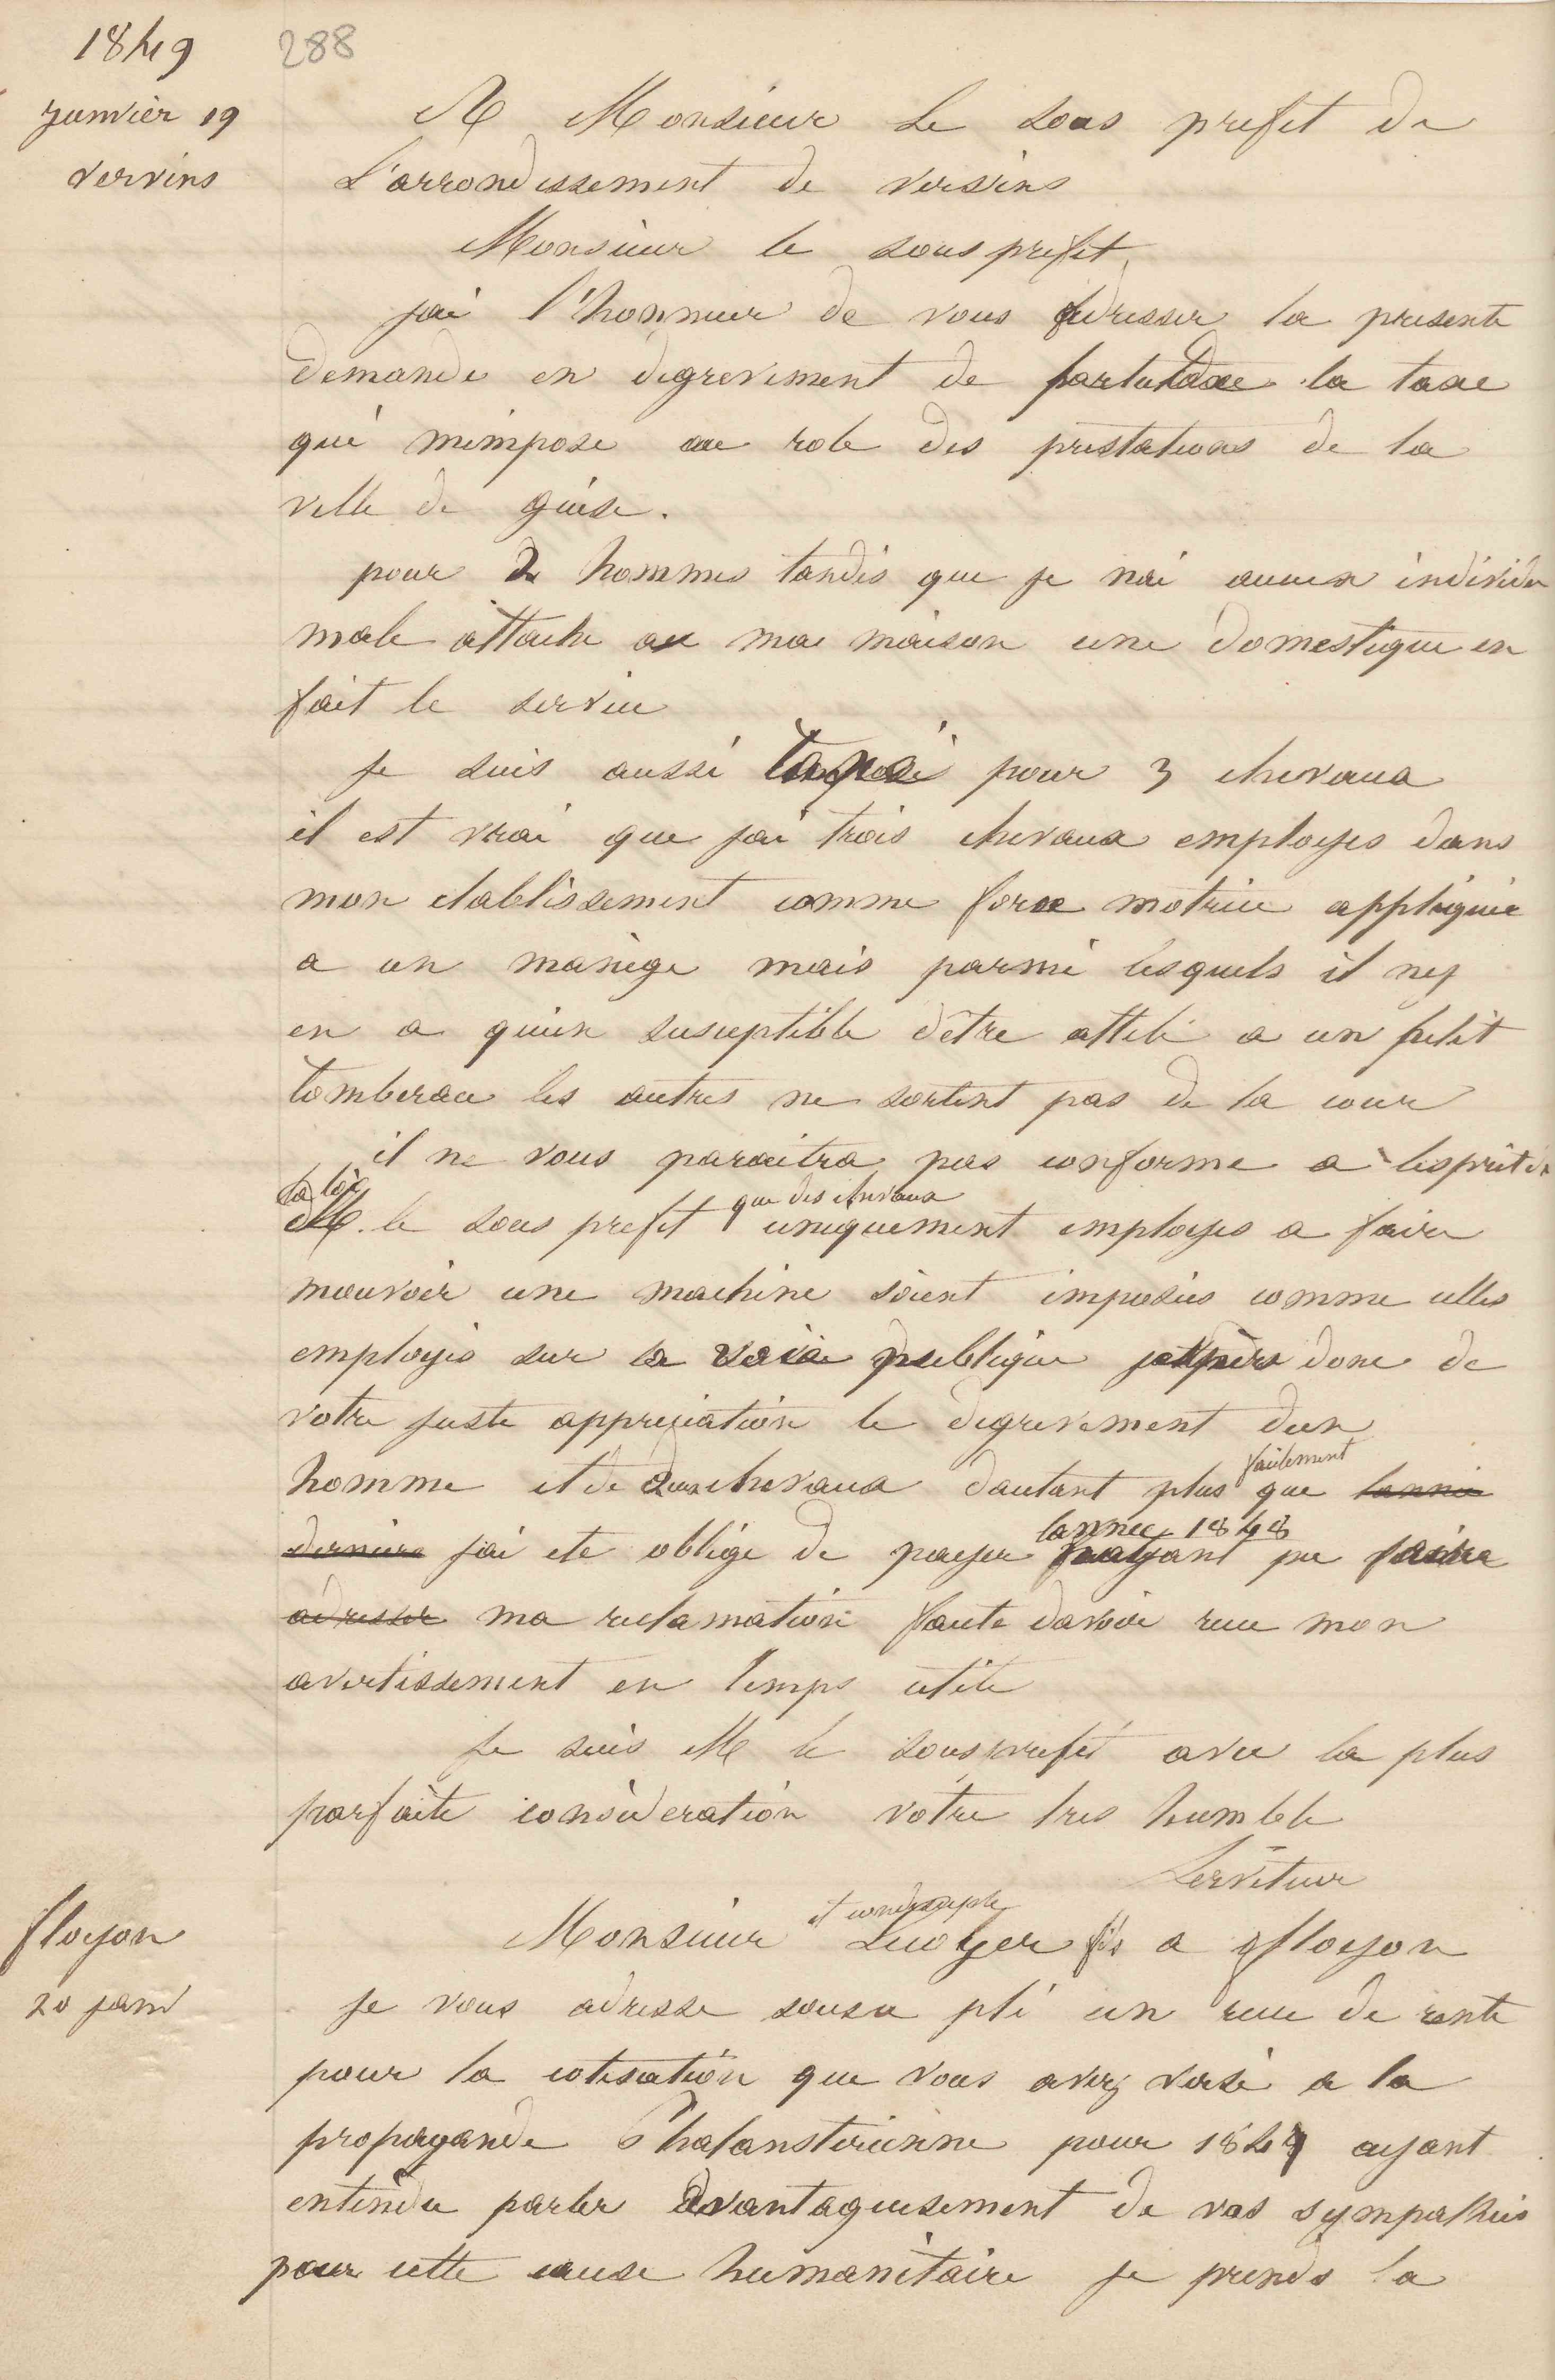 1849
288
Janvier 19
Vervins
A Monsieur Le Sous prefet de
L'arrondissement de vervins
Monsieur le sous prefet
jai l'honneur de vous adresser la presente
demande en degrevement de la taxe
qui mimpose au role des prestations de la
ville de guise.
pour 2 hommes tandis que je nai aucun individu
male attache a ma maison une domestique en
fait le service
je suis aussi taxé pour 3 chevaux
il est vrai que jai trois chevaux employes dans
mon etablissement comme force motrice appliquée
a un manège mais parmi lesquels il ny
en a quun susceptible d'être attelé a un petit
tombereau les autres ne sortent pas de la cour
il ne vous paraitra pas conforme a lesprit de
la loi
M. le sous prefet que des chevaux uniquement employes a faire
mouvoir une machine soient imposées comme celles
employés sur la voie publique jespère donc de
votre juste appreciation le degrevement dun
homme et de deux chevaux dautant plus facilement que lannée
derniere jai ete oblige de payer lannée 1848 nayant pu faire
adresser ma reclamation faute davoir recu mon
avertissement en temps utile
Je suis M le sous prefet avec la plus
parfaite consideration votre tres humble
Serviteur
floyon
20 janv
et condisciple
Monsieur fils a floyon
je vous adresse sous ce pli un recu de rente
pour la cotisation que vous avez versé a la
propagande Phalansterienne pour 1849 ayant
entendu parler avantageusement de vos sympathies
pour cette cause humanitaire je prends la